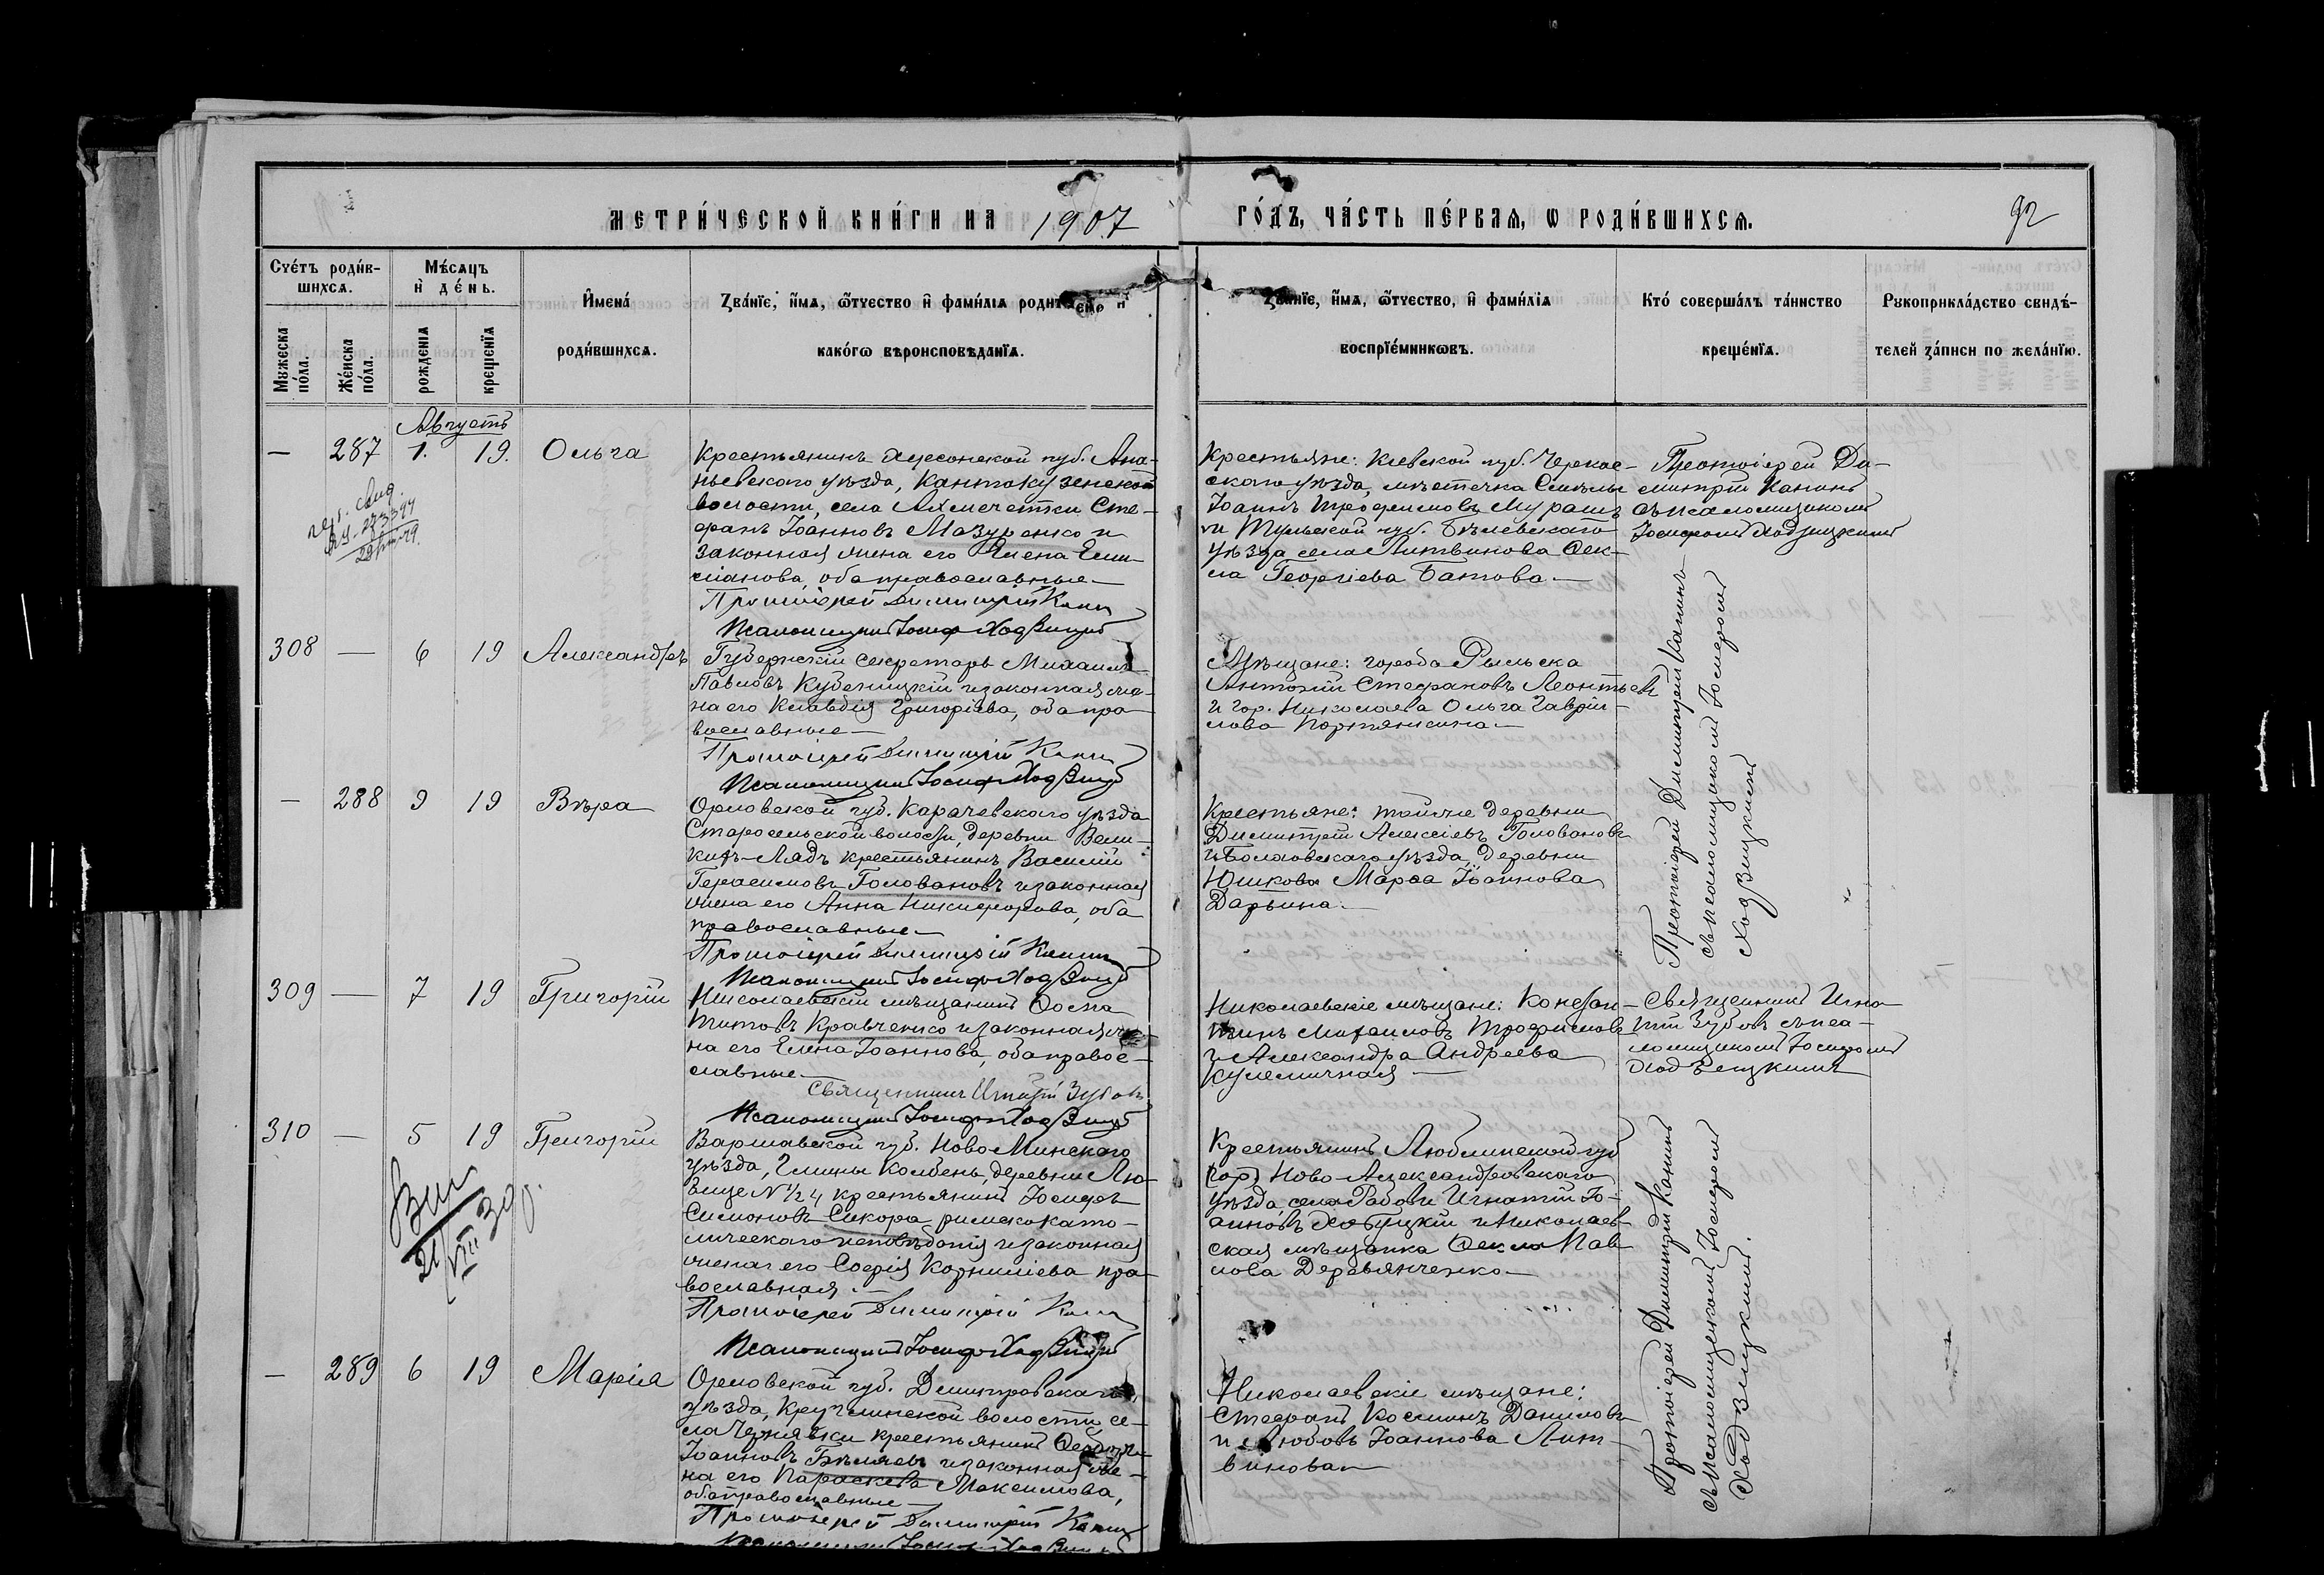 МЕТРИ́ЧЕСКОЙ КНИ́ГИ НА 1907
ГО́ДЪ, ЧА́СТЬ ПЕ́РВАѦ, Ѡ РОДИ́ВШИХСѦ.
92
Сче́тъ роди́в-
шихсѧ.
Мѣ́сѧцъ
и҆ де́нь.
И҆мена́
роди́вшихсѧ.
Ꙁва́нїе, и҆́мѧ, ѻ҆́тчество и҆ фами́лїѧ родителей, и҆
како́гѡ вѣроисповѣ́данїѧ.
Ꙁва́нїе, и҆́мѧ, ѻ҆́тчество, и҆ фами́лїѧ
воспрїе́мникѡвъ.
Кто́ соверша́лъ та́инство
креще́нїѧ.
Рꙋкоприкла́дство свидѣ́-
телей ꙁа́писи по жела́нїю.
Мꙋжеска
по́ла.
Же́нска
по́ла.
рожденїѧ
крещенїѧ
Августъ
— 287 1. 19. Ольга
Крестьянинъ Херсонской губ. Ана-
ньевскаго уѣзда, Кантакузенской
волости, села Ахмечетки Сте-
фанъ Іоанновъ Мазуренко и
законная жена его Елена Еми-
ліанова, оба православные.—
Протоіерей Димитрій Канин
Псаломщикъ Іосифъ Ходзицкій
Крестьяне: Кіевской губ. Черкас-
скаго уѣзда, мѣстечка Смѣлы
Іоаннъ Трофимовъ Мурашъ
и Тульской губ. Бѣлевскаго
уѣзда села Литвинова Ѳек-
ла Георгіева Батова.—
Протоіерей Ди-
митрій Канинъ
съ псаломщикомъ
Іосифомъ Ходзицкимъ
308 — 6 19 Александръ
Губернскій секретарь Михаилъ
Павловъ Кубеницкій и законная же-
на его Клавдія Григоріева, оба пра-
вославные—
Протоіерей Димитрій Канин
Псаломщикъ Іосифъ Ходзицкій
Мѣщане: города Рыльска
Антоній Стефановъ Леонтьевъ
и гор. Николаева Ольга Гаврии-
лова Портянкина.—
Протоіерей Димитрій Канинъ
съ псаломщикомъ Іосифомъ
Ходзицкимъ
— 288 9 19 Вѣра
Орловской губ. Карачевскаго уѣзда
Старосельской волости, деревни Вели-
кихъ-Лядъ крестьянинъ Василій
Герасимовъ Головановъ и законная
жена его Анна Никифорова, оба
православные—
Протоіерей Димитрій Канин
Псаломщикъ Іосифъ Ходзицкій
Крестьяне: той же деревни
Димитрій Алексіевъ Головановъ
и Болховскаго уѣзда, деревни
Юшкова Марѳа Іоаннова
Дарьина.—
309 — 7 19 Григорій
Николаевскій мѣщанинъ Ѳома
Титовъ Кравченко и законная же-
на его Елена Іоаннова, оба правос-
лавные—
Священникъ Игнатій Зубовъ
Псаломщикъ Іосифъ Ходзицкій
Николаевскіе мѣщане: Констан-
тинъ Михаиловъ Трофимовъ
и Александра Андреева
Кулемичная—
Священникъ Игна-
тій Зубовъ съ пса-
ломщикомъ Іосифомъ
Ходзицкимъ
310 — 5 19 Григорій
Варшавской губ. Ново Минскаго
уѣзда, Гмины Колбень, деревни Лю-
бице N 1/24 крестьянинъ Іосифъ
Симоновъ Сикора римско като-
лическаго исповѣданія и законная
жена его Софія Корниліева пра-
вославная.—
Протоіерей Димитрій Канин
Псаломщикъ Іосифъ Ходзицкій
Крестьянинъ Люблинской губ
Ново-Александровскаго
уѣзда, села Игнатій Іо-
анновъ и Николаев-
ская мѣщанка Ѳекла Пав-
лова Деревянченко—
Протоіерей Димитрій Канинъ
съ псаломщикомъ Іосифомъ
Ходзицкимъ.
— 289 6 19 Марія
Орловской губ. Дмитровскаго,
уѣзда, Круглинской волости се-
ла Чернявки крестьянинъ
Іоанновъ Бѣляевъ и законная же-
на его Параскева Максимова,
оба православные—
Протоіерей Димитрій Канин
Псаломщикъ Іосифъ Ходзицкій
Николаевскіе мѣщане:
Стефанъ Косминъ Даниловъ
и Любовь Іоаннова Лит-
винова—